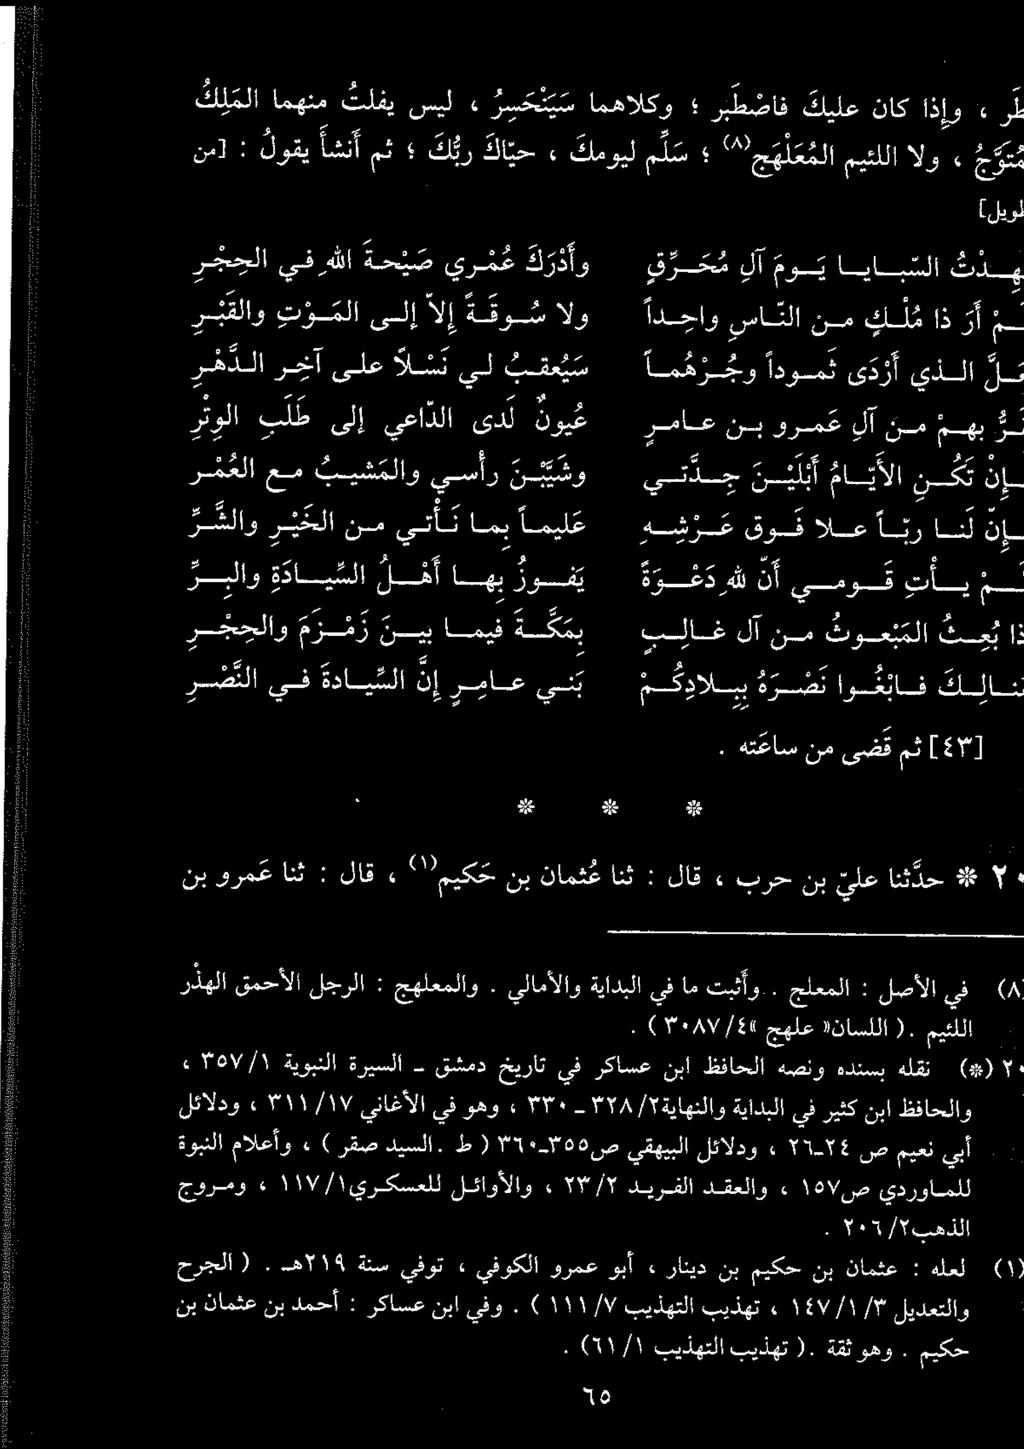 طَر ، وإذا كان عليك فاصْطَبر ؛ وكلاهما سَيَنْحَسِرُ ، ليس يفلتُ منهما المَلِكُ
مُتوَّجُ ، ولا اللئيم المُعَلْهَج(٨) ؛ سَلِّم ليومكَ ، حيّاكَ ربُّكَ ؛ ثم أَنشأَ يقولُ : [من
طويل]
ـهِـدْتُ السّبـايـا يَـومَ آلِ مُحَـرِّقٍ وأَدْرَكَ عُمْـري صَيْحـةَ اللهِ فـي الحِجْـرِ
ـمْ أَرَ ذا مُلْـكٍ مـن النّـاسِ واحِـداً ولا سُـوقَـةً إلاّ إلـى المَـوْتِ والقَبْـرِ
ـلَّ الـذي أَرْدَى ثَمـوداً وجُـرْهُمـاً سَيُعقـبُ لـي نَسْـلاً علـى آخـرِ الـدَّهْـرِ
ـرُّ بهـمْ مـن آلِ عَمـرو بـن عـامـرٍ عُيونٌ لَدى الدّاعي إلى طَلَبِ الوِتْرِ
ـإِنْ تَكُـنِ الأَيّـامُ أَبْلَيْـنَ جِـدَّتـي وشَيَّبْـنَ رأسـي والمَشيـبُ مـع العُمْـرِ
ـإِنَّ لنـا ربّـاً عـلا فَـوق عَـرْشِـهِ عَليمـاً بِمـا نَـأْتـي مـن الخَيْـرِ والشَّـرِّ
ـمْ يـأْتِ قَـومـي أَنَّ للهِ دَعْـوَةً يَفـوزُ بِهـا أَهْـلُ السِّيـادَةِ والبِـرِّ
ذا بُعِـثَ المَبْعـوثُ مـن آلِ غـالِـبٍ بِمَكَّـةَ فيمـا بيـنَ زَمْـزَمَ والحِجْـرِ
ـنـالِـكَ فـابْغُـوا نَصْـرَهُ بِبِـلادِكُـمْ بَنـي عـامـرٍ إنَّ السِّيـادةَ فـي النَّصْـرِ
[٤٣] ثم قَضى من ساعَته .
* * *
٢٠ * حدَّثنا عليّ بن حرب ، قال : ثنا عُثمان بن حَكيم(١) ، قال : ثنا عَمرو بن
(٨) في الأصل : المعلج .. وأَثبت ما في البداية والأمالي . والمعلهج : الرجل الأحمق الهذْر
اللئيم . ( اللسان «علهج» ٤/٣٠٨٧ ) .
٢٠ (*) نقله بسنده ونصه الحافظ ابن عساكر في تاريخ دمشق ـ السيرة النبوية ١/٣٥٧ ،
والحافظ ابن كثير في البداية والنهاية٢/٣٢٨ ـ ٣٣٠ ، وهو في الأغاني ١٧/٣١١ ، ودلائل
أبي نعيم ص ٢٤ـ٢٦ ، ودلائل البيهقي ص٣٥٥ـ٣٦٠ ( ط .السيد صقر ) ، وأعلام النبوة
للمـاوردي ص١٥٧ ، والعقـد الفـريـد ٢/٢٣ ، والأوائـل للعسكـري١/١١٧ ، ومـروج
الذهب٢/٢٠٦ .
(١) لعله : عثمان بن حكيم بن دينار ، وأبو عمرو الكوفي ، توفي سنة ٢١٩هـ . ( الجرح
والتعديل ٣/ ١/١٤٧ ، تهذيب التهذيب ٧/١١١ ) . وفي ابن عساكر : أحمد بن عثمان بن
حكيم . وهو ثقة .( تهذيب التهذيب ١/٦١) .
٦٥